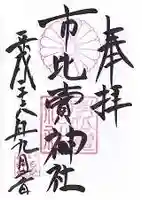 奉拝
市比賣神社
平成二十八年九月